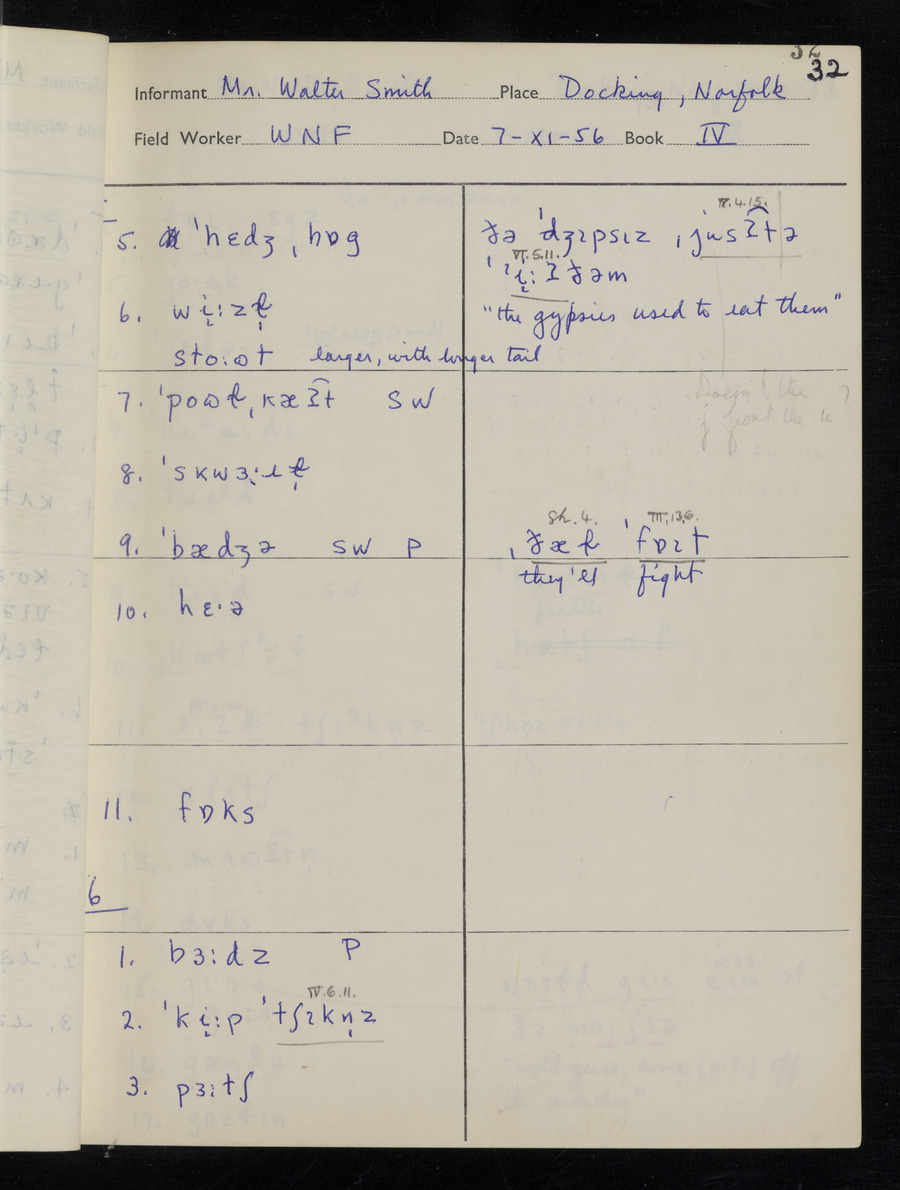 32
32
Informant Mr. Walter Smith Place Docking, Norfolk
Field Worker W N F Date 7-XI-56 Book IV
5. ˈhɛdʒˌhɒɡ
ðə ˈdʒɪpsɪz ˌjus
IV.4.15.
VI.5.11.
"the gypsies used to eat them"
6. wi̞:zɫ̩
sto:ʊt larger, with longer tail
7. SW
Doesn't the
j front the u
?
8.
9. ˈbædʒə SW P
Sh. 4. III.13.6.
ˌðæɫ ˈfɒɪt
they'll fight
10. hɛ·ə
11. fɒks
6
1. bɜ:dz P
IV.6.11.
2. ˈki̞:p ˈtʃɪkn̩z
3. pɜ:tʃ